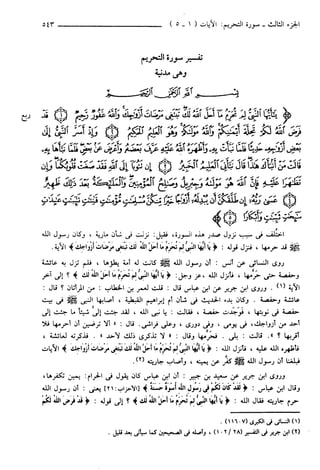 الجزء الثالث - سورة التحريم: الآيات ( ١ - ٥ ) ٥٤٣
تفسير سورة التحريم
وهي مدنية
بسم الله الرحمن الرحيم
﴿ يَٰٓأَيُّهَا ٱلنَّبِيُّ لِمَ تُحَرِّمُ مَآ أَحَلَّ ٱللَّهُ لَكَ تَبْتَغِي مَرْضَاتَ أَزْوَٰجِكَ وَٱللَّهُ غَفُورٌ رَّحِيمٌ ۝ قَدْ
فَرَضَ ٱللَّهُ لَكُمْ تَحِلَّةَ أَيْمَٰنِكُمْ وَٱللَّهُ مَوْلَىٰكُمْ وَهُوَ ٱلْعَلِيمُ ٱلْحَكِيمُ ۝ وَإِذْ أَسَرَّ ٱلنَّبِيُّ إِلَىٰ
بَعْضِ أَزْوَٰجِهِۦ حَدِيثًا فَلَمَّا نَبَّأَتْ بِهِۦ وَأَظْهَرَهُ ٱللَّهُ عَلَيْهِ عَرَّفَ بَعْضَهُۥ وَأَعْرَضَ عَنۢ بَعْضٍ فَلَمَّا نَبَّأَهَا بِهِۦ
قَالَتْ مَنْ أَنۢبَأَكَ هَٰذَا قَالَ نَبَّأَنِيَ ٱلْعَلِيمُ ٱلْخَبِيرُ ۝ إِن تَتُوبَآ إِلَى ٱللَّهِ فَقَدْ صَغَتْ قُلُوبُكُمَا وَإِن
تَظَٰهَرَا عَلَيْهِ فَإِنَّ ٱللَّهَ هُوَ مَوْلَىٰهُ وَجِبْرِيلُ وَصَٰلِحُ ٱلْمُؤْمِنِينَ وَٱلْمَلَٰٓئِكَةُ بَعْدَ ذَٰلِكَ ظَهِيرٌ
۝ عَسَىٰ رَبُّهُۥٓ إِن طَلَّقَكُنَّ أَن يُبْدِلَهُۥٓ أَزْوَٰجًا خَيْرًا مِّنكُنَّ مُسْلِمَٰتٍ مُّؤْمِنَٰتٍ قَٰنِتَٰتٍ تَٰٓئِبَٰتٍ
عَٰبِدَٰتٍ سَٰٓئِحَٰتٍ ثَيِّبَٰتٍ وَأَبْكَارًا ۝ ﴾
اختُلف فى سبب نزول صدر هذه السورة، فقيل: نزلت فى شأن مارية، وكان رسول الله
ﷺ قد حرمها، فنزل قوله: ﴿ يا أيها النبي لم تحرم ما أحل الله لك تبتغي مرضات أزواجك ﴾ الآية.
روى النسائى عن أنس: أن رسول الله ﷺ كانت له أمة يطؤها، فلم تزل به عائشة
وحفصة حتى حَرَّمها، فأنزل الله، عز وجل: ﴿ يا أيها النبي لم تحرم ما أحل الله لك ﴾ ؟ إلى آخر
الآية (١). وروى ابن جرير عن ابن عباس قال: قلت لعمر بن الخطاب: من المرأتان ؟ قال:
عائشة وحفصة. وكان بدء الحديث فى شأن أم إبراهيم القبطية، أصابها النبى ﷺ فى بيت
حفصة فى نوبتها، فوَجَدت حفصة، فقالت: يا نبى الله، لقد جئت إلىَّ شيئًا ما جئت إلى
أحد من أزواجك، فى يومى، وفى دورى، وعلى فراشى. قال: « ألا ترضين أن أحرمها فلا
أقربها ؟ ». قالت: بلى. فحرَّمها وقال: « لا تذكرى ذلك لأحد ». فذكرته لعائشة،
فأظهره الله عليه، فأنزل الله: ﴿ يا أيها النبي لم تحرم ما أحل الله لك تبتغي مرضات أزواجك ﴾ الآيات
فبلغنا أن رسول الله ﷺ كفَّر عن يمينه، وأصاب جاريته (٢).
وروى ابن جرير عن سعيد بن جبير: أن ابن عباس كان يقول فى الحرام: يمين تكفرها،
وقال ابن عباس: ﴿ لقد كان لكم في رسول الله أسوة حسنة ﴾ [الأحزاب:٢١] يعنى: أن رسول الله
حرم جاريته فقال الله: ﴿ يا أيها النبي لم تحرم ما أحل الله لك ﴾ ؟ إلى قوله: ﴿ قد فرض الله لكم
(١) النسائى فى الكبرى (١١٦٠٧).
(٢) ابن جرير فى التفسير (١٠٢/٢٨)، وأصله فى الصحيحين كما سيأتى بعد قليل.